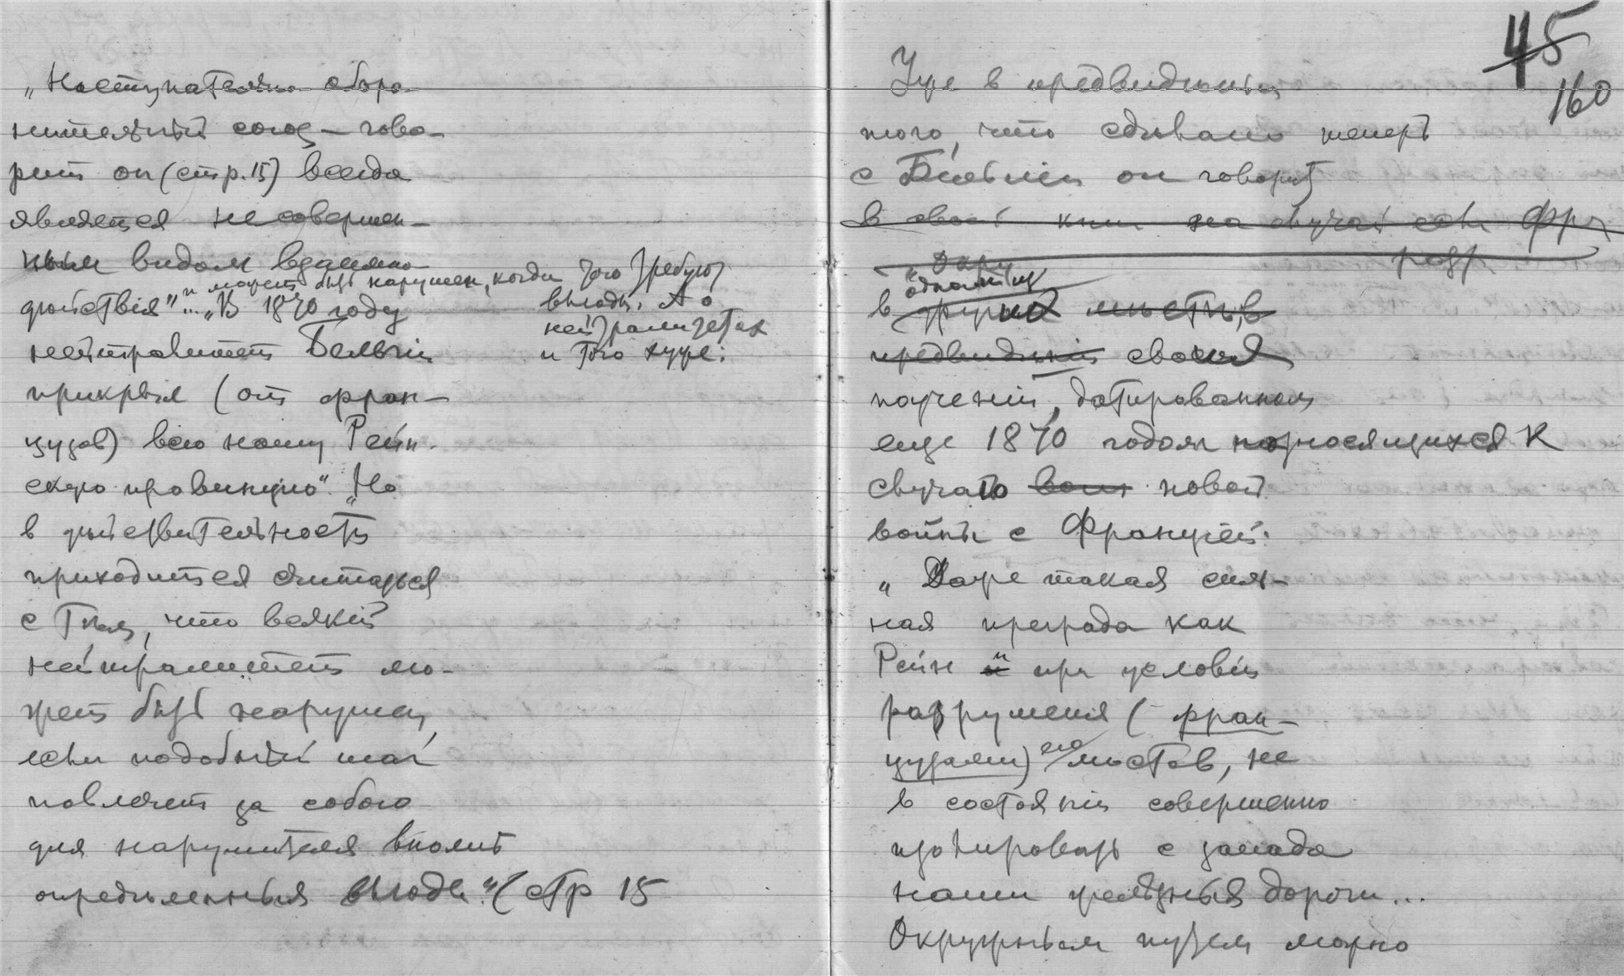 „Наступательно оборо-
нительный союз – гово-
рит он (стр. 15) всегда
является несовершен-
ным видом взаимно-
и может быть нарушен, когда того требуют
дѣйствія"... „В 1870 году
выгоды. А о
нейтралитетах
и того хуже:
нейтралитет Бельгіи
прикрыл (от фран-
цузов) всю нашу Рейн-
скую провинцію". „Но
в дѣйствительности
приходится считаться
с тѣм, что всякій
нейтралитет мо-
жет быть нарушен,
если подобный шаг
повлечет за собою
для нарушителя вполнѣ
опредѣленныя выгоды" (стр 15
45
160
Уже в предвидѣніи
того, что сдѣлано теперь
с Бельгіей он говорит
в своей на случай если
в одном из
предвидѣніи своих
поученій, датированном
еще 1870 годом относящихся к
случаю новой
войны с Францией:
„Даже такая силь-
ная преграда как
Рейн и при условіи
разрушенія (фран-
цузами) его мостов, не
в состояніи совершенно
изолировать с запада
наши желѣзныя дороги...
Окружным путем можно